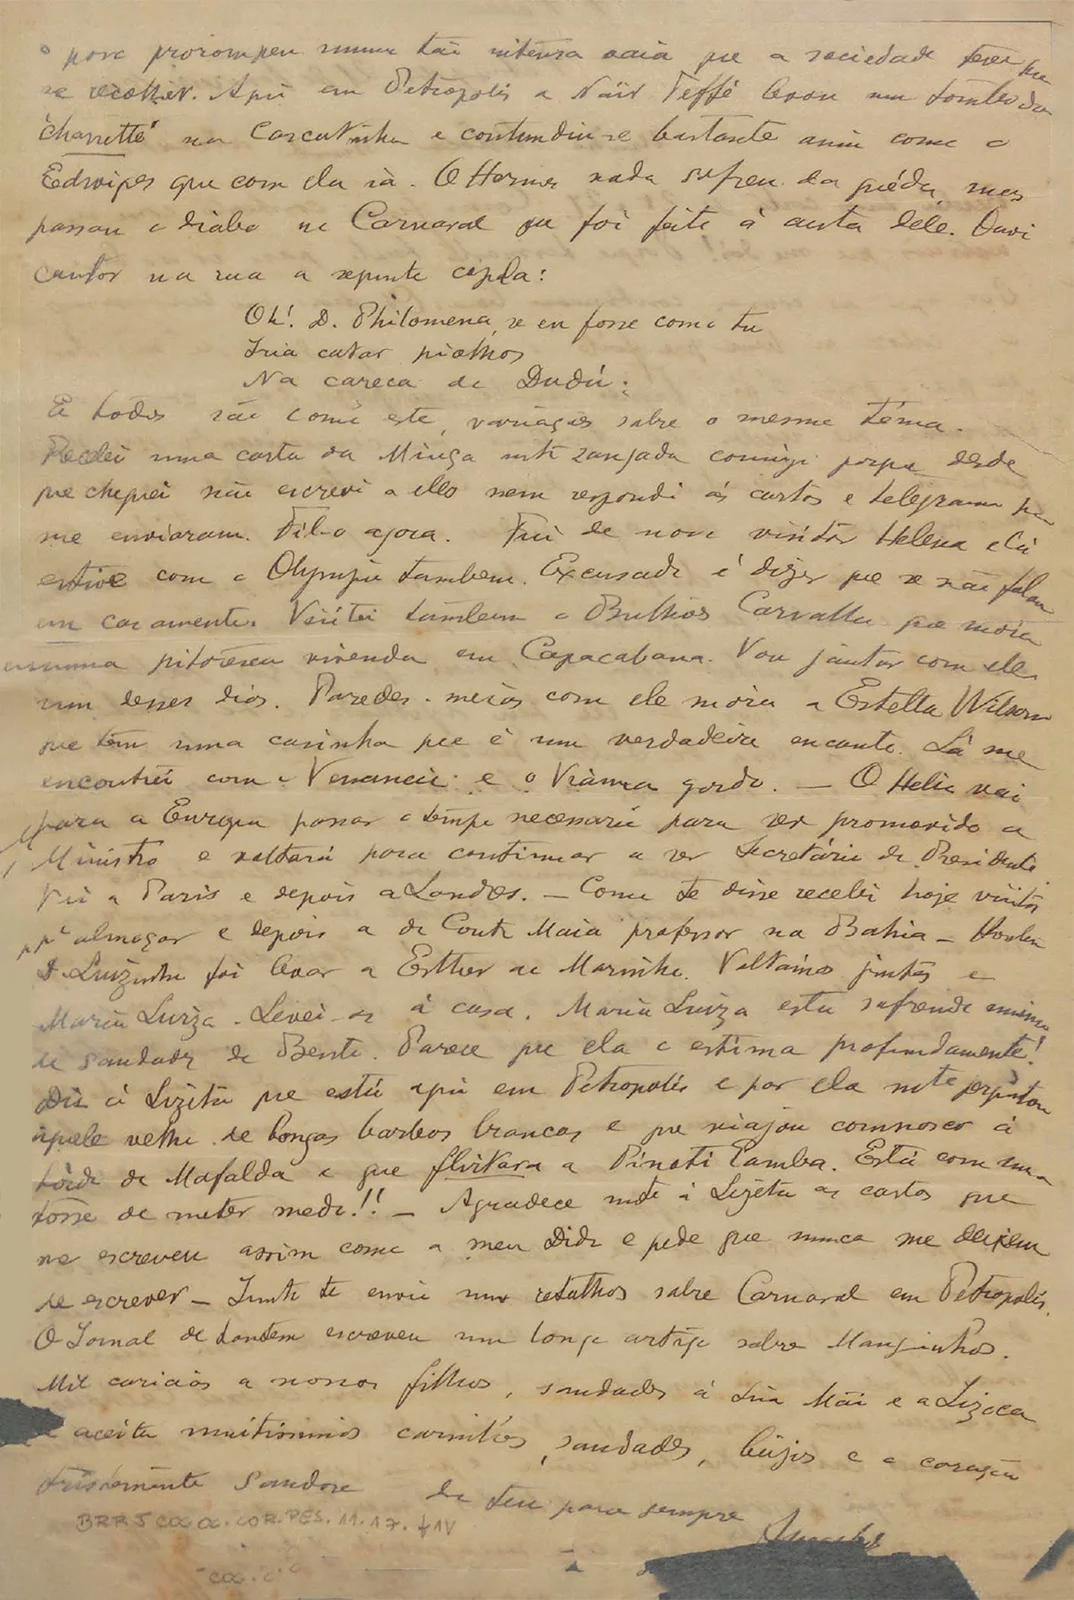 o povo prorompeu numa tão intensa vaia que a sociedade teve que
se recolher. Aqui em Petropolis a Nair Teffé levou um tombo da
"charrette" na Cascatinha e contundiu-se bastante assim como o
Edwiges que com ella ia. O Hermes nada soffreu da quéda, mas
passou o diabo no Carnaval que foi feito á custa delle. Ouvi
cantar na rua a seguinte copla:
Oh! D. Philomena, se eu fosse como tu
Iria catar piolhos
Na careca do Dudú;
E todos são como este, variações sobre o mesmo têma.
Recebi uma carta da Minga mto zangada comigo porque desde
que cheguei não escrevi a elles nem respondi ás cartas e telegramma que
me enviaram. Fil-o agora. Fui de novo visitar Helena e lá
estive com o Olympio tambem. Excusado é dizer que se não falou
em casamento. Visitei tambem o Bulhões Carvalho que móra
numa pitoresca vivenda em Copacabana. Vou jantar com elle
um desses dias. Paredes-meias com ele móra a Estella Wilson
que tem uma casinha que é um verdadeiro encanto. Lá me
encontrei com o Venancio e o Vianna gordo. — O Helio vai
para a Europa passar o tempo necessario para ser promovido a
Ministro e voltará para continuar a ser Secretário do Presidente
Vai a Paris e depois a Londres. — Como te disse recebi hoje visitas
pª almoçar e depois a do Couto Maia professor na Bahia —
D. Luizinha foi levar a Esther ao Marinho. Voltámos juntos e
Maria Luiza. Levei-as á casa. Maria Luiza esta sofrendo muito
de saudades de Bento. Parece que ela o estima profundamente!
Diz á Lizita que está aqui em Petropolis e por ela mto perguntou
aquele velho de longas barbas brancas e que viajou comnosco á
bordo do Mafalda e que flirtara a Pinoti Gamba. Está com uma
tosse de meter medo!! — Agradece mto á Lizeta as cartas que
me escreveu assim como a meu Dido e pede que nunca me deixem
de escrever — Junto te envio uns retalhos sobre Carnaval em Petropolis.
O Jornal de hontem escreveu um longo artigo sobre Manguinhos.
Mil caricias a nossos filhos, saudades á tua Mãi e a Lizoca
e aceita muitissimos carinhos, saudades, beijos e o coração
tristemente saudoso do teu para sempre
BRRJ COC OC.COR.PES.11.17.41V
coc.